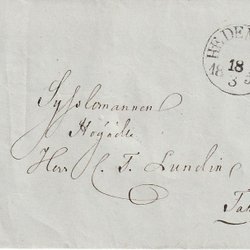 HEDEM
18 18
3
Sysslomannen
Högädle
Herr C. F. Lundin